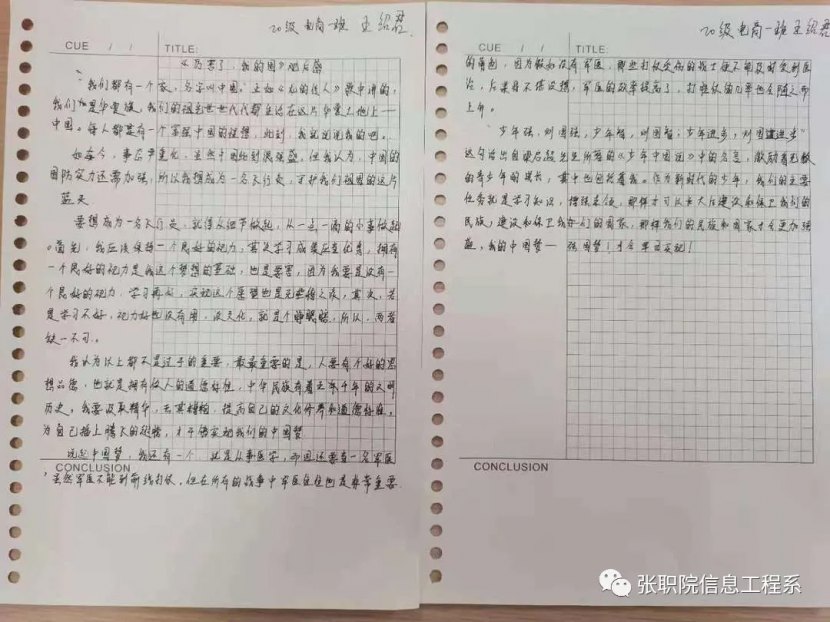 20级电商一班 王绍君
CUE / /
TITLE:
《厉害了，我的国》观后感
“我们都有一个家，名字叫中国。”正如《龙的传人》歌中讲的，
我们都是华夏族，我们的祖先世世代代都生活在这片华夏土地上——
中国。每人都是有一个富强中国的理想，此刻，我就说说我的吧。
如每今，事态严重化，虽然中国络到很强盛，但我认为，中国的
国防实力还需加强，所以我想成为一名飞行员，守护我们祖国的这片
蓝天
要想成为一名飞行员，就得从细节做起，从一点一滴的小事做起
。首先，我应该保持一个良好的视力，其次学习成果应重优秀，拥有
一个良好的视力是我这个梦想的基础，也是要害，因为我要是没有一
个良好的视力，学习再好，实现这个愿望也是无些稽之谈，其次，若
是学习不好，视力好也没有用，没文化，就是个睁眼瞎，所以，两者
缺一不可。
我认为以上都不是过于的重要，最最重要的是，人要有个好的思
想品德，也就是拥有做人的道德好性，中华民族有着五千年的文明
历史。我要汲取精华，去其糟粕，提高自己的文化修养和道德好性。
为自己插上腾飞的翅膀，才干够实现我们的中国梦
说起中国梦，我还有一个，就是从事医学，祖国还要有一名军医
，虽然军医不能到前线打仗，但在所有的战事中军医往往也是非常重要
CONCLUSION
20级电商一班 王绍君
CUE / /
TITLE:
的角色，因为假如没有军医，那些打仗受伤的战士便不能及时受到医
治，后果将不堪设想，军医的效率提高了，打胜仗的几率也会随之而
上升。
“少年强，则国强，少年智，则国智；少年进步，则国建进步”
这句话出自梁启超先生所著的《少年中国说》中的名言，激励着无数
的青少年的成长，其中也包括着我。作为新时代的少年，我们的主要
任务就是学习知识，增强本领，那样才可以长大后建设和保卫我们的
民族，建设和保卫我们们的国家，那样我们的民族和国家才会更加强
盛，我的中国梦——强国梦！才会早日实现！
CONCLUSION
张职院信息工程系